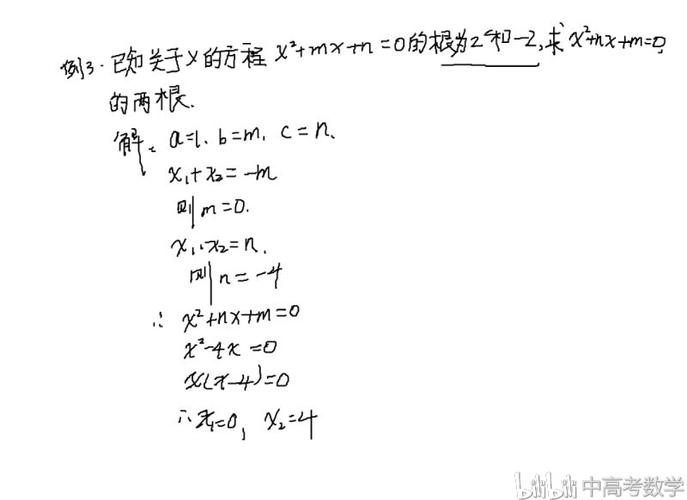 例3. 已知关于x的方程 x²+mx+n=0的根为2和-2,求x²+nx+m=0
的两根.
解: a=1. b=m. c=n.
x₁+x₂=-m
则m=0.
x₁·x₂=n.
则n=-4
∴ x²+nx+m=0
x²-4x=0
x(x-4)=0
∴x₁=0, x₂=4
bilibili 中高考数学